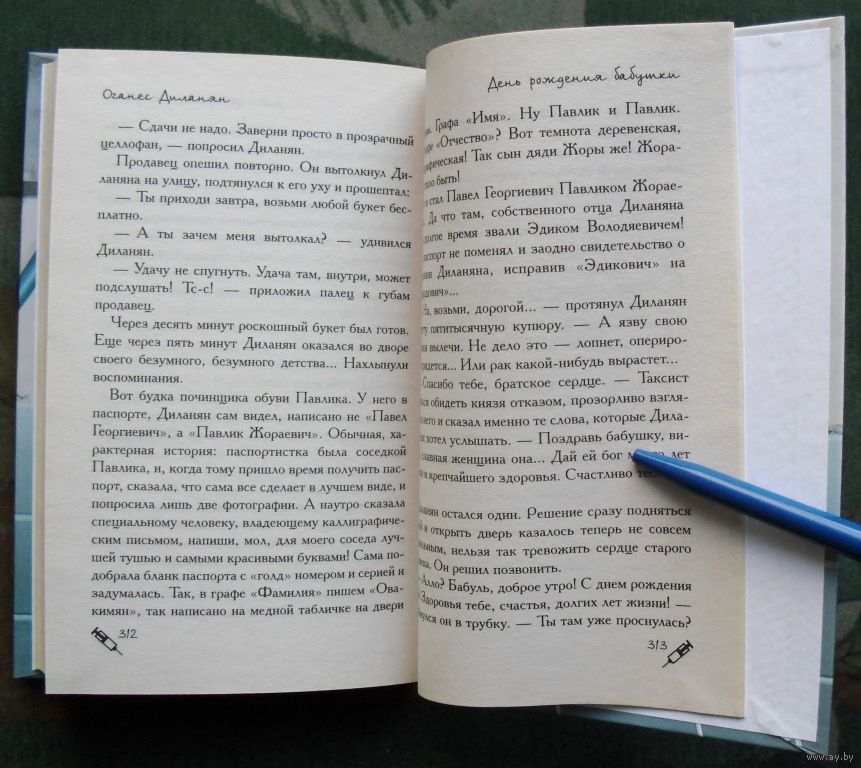 Оганес Диланян
— Сдачи не надо. Заверни просто в прозрачный
целлофан, — попросил Диланян.
Продавец опешил повторно. Он вытолкнул Ди-
ланяна на улицу, подтянулся к его уху и прошептал:
— Ты приходи завтра, возьми любой букет бес-
платно.
— А ты зачем меня вытолкал? — удивился
Диланян.
— Удачу не спугнуть. Удача там, внутри, может
подслушать! Тс-с! — приложил палец к губам
продавец.
Через десять минут роскошный букет был готов.
Еще через пять минут Диланян оказался во дворе
своего безумного, безумного детства... Нахлынули
воспоминания.
Вот будка починщика обуви Павлика. У него в
паспорте, Диланян сам видел, написано не «Павел
Георгиевич», а «Павлик Жораевич». Обычная, ха-
рактерная история: паспортистка была соседкой
Павлика, и, когда тому пришло время получить пас-
порт, сказала, что сама все сделает в лучшем виде, и
попросила лишь две фотографии. А наутро сказала
специальному человеку, владеющему каллиграфичес-
ким письмом, напиши, мол, для моего соседа луч-
шей тушью и самыми красивыми буквами! Сама по-
добрала бланк паспорта с «голд» номером и серией и
задумалась. Так, в графе «Фамилия» пишем «Ова-
кимян», так написано на медной табличке на двери
312
День рождения бабушки
Графа «Имя». Ну Павлик и Павлик.
«Отчество»? Вот темнота деревенская,
фическая! Так сын дяди Жоры же! Жора-
быть!
стал Павел Георгиевич Павликом Жорае-
Да что там, собственного отца Диланяна
лгое время звали Эдиком Володяевичем!
спорт не поменял и заодно свидетельство о
Диланяна, исправив «Эдикович» на
дович»...
На, возьми, дорогой... — протянул Диланян
пятитысячную купюру. — А язву свою
вылечи. Не дело это — лопнет, опериро-
дется... Или рак какой-нибудь вырастет...
Спасибо тебе, братское сердце. — Таксист
обидеть князя отказом, прозорливо взгля-
него и сказал именно те слова, которые Дила-
хотел услышать. — Поздравь бабушку, ви-
славная женщина она... Дай ей бог лет
и крепчайшего здоровья. Счастливо
ланян остался один. Решение сразу подняться
и открыть дверь казалось теперь не совсем
льным, нельзя так тревожить сердце старого
века. Он решил позвонить.
Алло? Бабуль, доброе утро! С днем рождения
Здоровья тебе, счастья, долгих лет жизни! —
нулся он в трубку. — Ты там уже проснулась?
313
www.ay.by